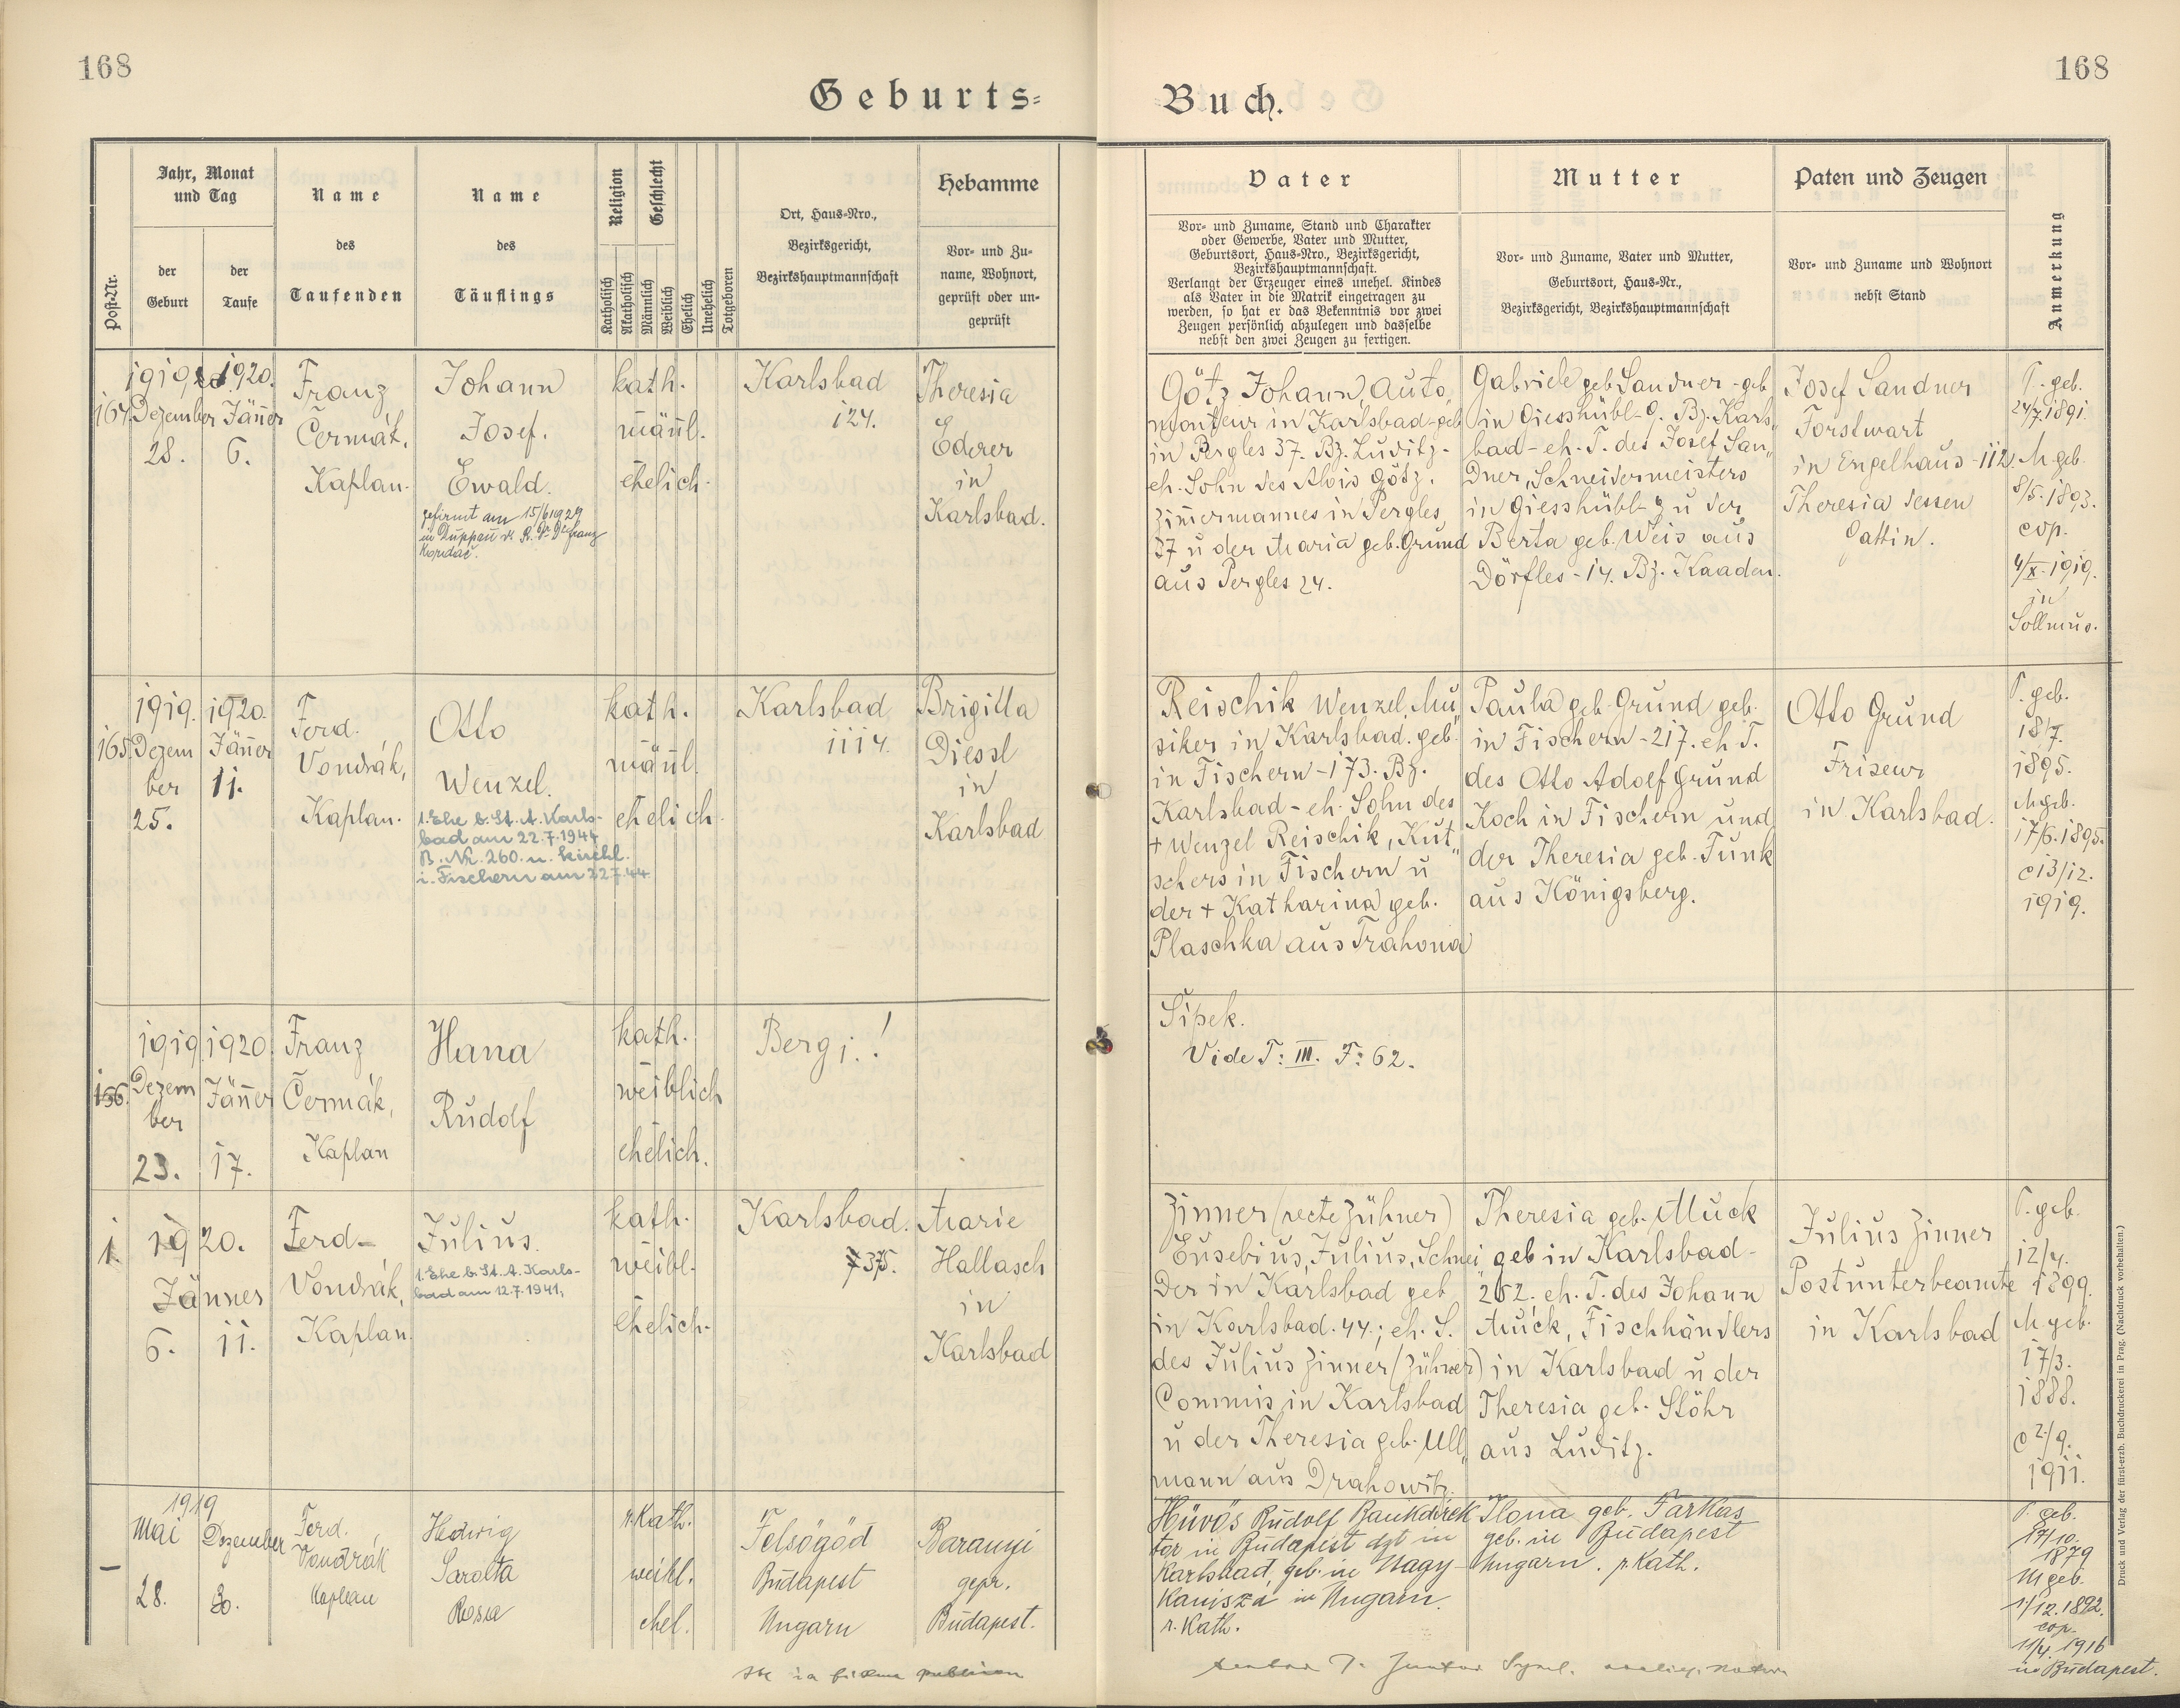 168
168
Geburts=
Buch.
Post-Nr.
Jahr, Monat
und Tag
der
Geburt
der
Taufe
Name
des
Taufenden
Name
des
Täuflings
Religion
Katholisch
Akatholisch
Geschlecht
Männlich
Weiblich
Ehelich
Unehelich
Totgeboren
Ort, Haus-Nro.,
Bezirksgericht,
Bezirkshauptmannschaft
Hebamme
Vor- und Zu-
name, Wohnort,
geprüft oder un-
geprüft
Vater
Vor- und Zuname, Stand und Charakter
oder Gewerbe, Vater und Mutter,
Geburtsort, Haus-Nro., Bezirksgericht,
Bezirkshauptmannschaft.
Verlangt der Erzeuger eines unehel. Kindes
als Vater in die Matrik eingetragen zu
werden, so hat er das Bekenntnis vor zwei
Zeugen persönlich abzulegen und dasselbe
nebst den zwei Zeugen zu fertigen.
Mutter
Vor- und Zuname, Vater und Mutter,
Geburtsort, Haus-Nr.,
Bezirksgericht, Bezirkshauptmannschaft
Paten und Zeugen
Vor- und Zuname und Wohnort
nebst Stand
Anmerkung
164.
1919
Dezember
28.
1920.
Jänner
6.
Franz
Čermák,
Kaplan.
Johann
Josef.
Ewald.
gefirmt am 15/6 1929
in Duppau
kath.
männl.
ehelich.
Karlsbad
124.
Theresia
Ederer
in
Karlsbad.
Götz Johann, Auto,
monteur in Karlsbad - geb
in Pergles 37. Bz. Luditz -
eh. Sohn des Alois Götz.
Zimmermannes in Pergles
37 u der Maria geb. Grund
aus Pergles 24.
Gabriele geb Sandner - geb
in Giesshübl - 9. Bz. Karls„
bad - eh. T. des Josef San„
dner, Schneidermeisters
in Giesshübl - 9 u der
Berta geb. Weis aus
Dörfles - 14. Bz. Kaaden.
Josef Sandner
Forstwart
in Engelhaus - 112.
Theresia dessen
Gattin.
P. geb.
24/7. 1891.
M. geb.
8/5. 1893.
cop.
4/X. 1919.
in
Sollmus.
165.
1919.
Dezem
ber
25.
1920.
Jänner
11.
Ferd.
Vondrák,
Kaplan.
Otto
Wenzel.
1. Ehe b. St. A. Karls-
bad am 22.7.1944
B. Nr. 260. u. kirchl.
i. Fischern am 22.7.44
kath.
männl.
ehelich.
Karlsbad
1114.
Brigitta
Diessl
in
Karlsbad
Reischik Wenzel, Mu„
siker in Karlsbad. geb.
in Fischern - 173. Bz.
Karlsbad - eh. Sohn des
+ Wenzel Reischik, Kut„
schers in Fischern u
der + Katharina geb.
Plaschka aus Trahona
Paula geb. Grund geb.
in Fischern - 217. eh. T.
des Otto Adolf Grund
Koch in Fischern und
der Theresia geb. Funk
aus Königsberg.
Otto Grund
Friseur
in Karlsbad.
P. geb.
18/7.
1895.
M. geb.
17/6. 1895.
c 13/12.
1919.
166.
1919
Dezem
ber
23.
1920.
Jänner
17.
Franz
Čermák,
Kaplan
Hana
Rudolf
kath.
weiblich
ehelich.
Berg i..!
Šípek.
Vide T: III. F: 62.
1.
1920.
Jänner
6.
11.
Ferd-
Vondrák,
Kaplan.
Julius.
1. Ehe b. St. A. Karls-
bad am 12.7.1941,
kath.
weibl.
ehelich.
Karlsbad.
735.
Marie
Hallasch
in
Karlsbad
Zinner (recte Zühner)
Eusebius, Julius, Schnei
der in Karlsbad geb
in Karlsbad. 44.; eh. S.
des Julius Zinner (Zühner)
Commis in Karlsbad
u der Theresia geb. Ull„
mann aus Drahowitz.
Theresia geb. Muck
geb in Karlsbad -
262. eh. T. des Johann
Muck, Fischhändlers
in Karlsbad u der
Theresia geb. Stöhr
aus Luditz.
Julius Zinner
Postunterbeamte
in Karlsbad
P. geb.
12/4.
1899.
M geb.
17/3.
1888.
c 2/9.
1911.
–
1919
Mai
28.
Dezember
Ferd.
Vondrák
Kaplan
Hedwig
Sarolta
Rosa
r. Kath.
weibl.
ehel.
Felsögöd
Budapest
Ungarn
Baranyi
gepr.
Budapest.
Hüvös Rudolf Bankdirek
tor in Budapest dzt in
Karlsbad, geb. in Nagy-
Kanisza in Ungarn.
r. Kath.
Ilona geb. Farkas
geb. in Budapest
Ungarn. r. Kath.
P. geb.
17/10.
1879
M geb.
1/12. 1892.
cop.
11/4. 1916
in Budapest.
Druck und Verlag der fürst-erzb. Buchdruckerei in Prag. (Nachdruck vorbehalten.)